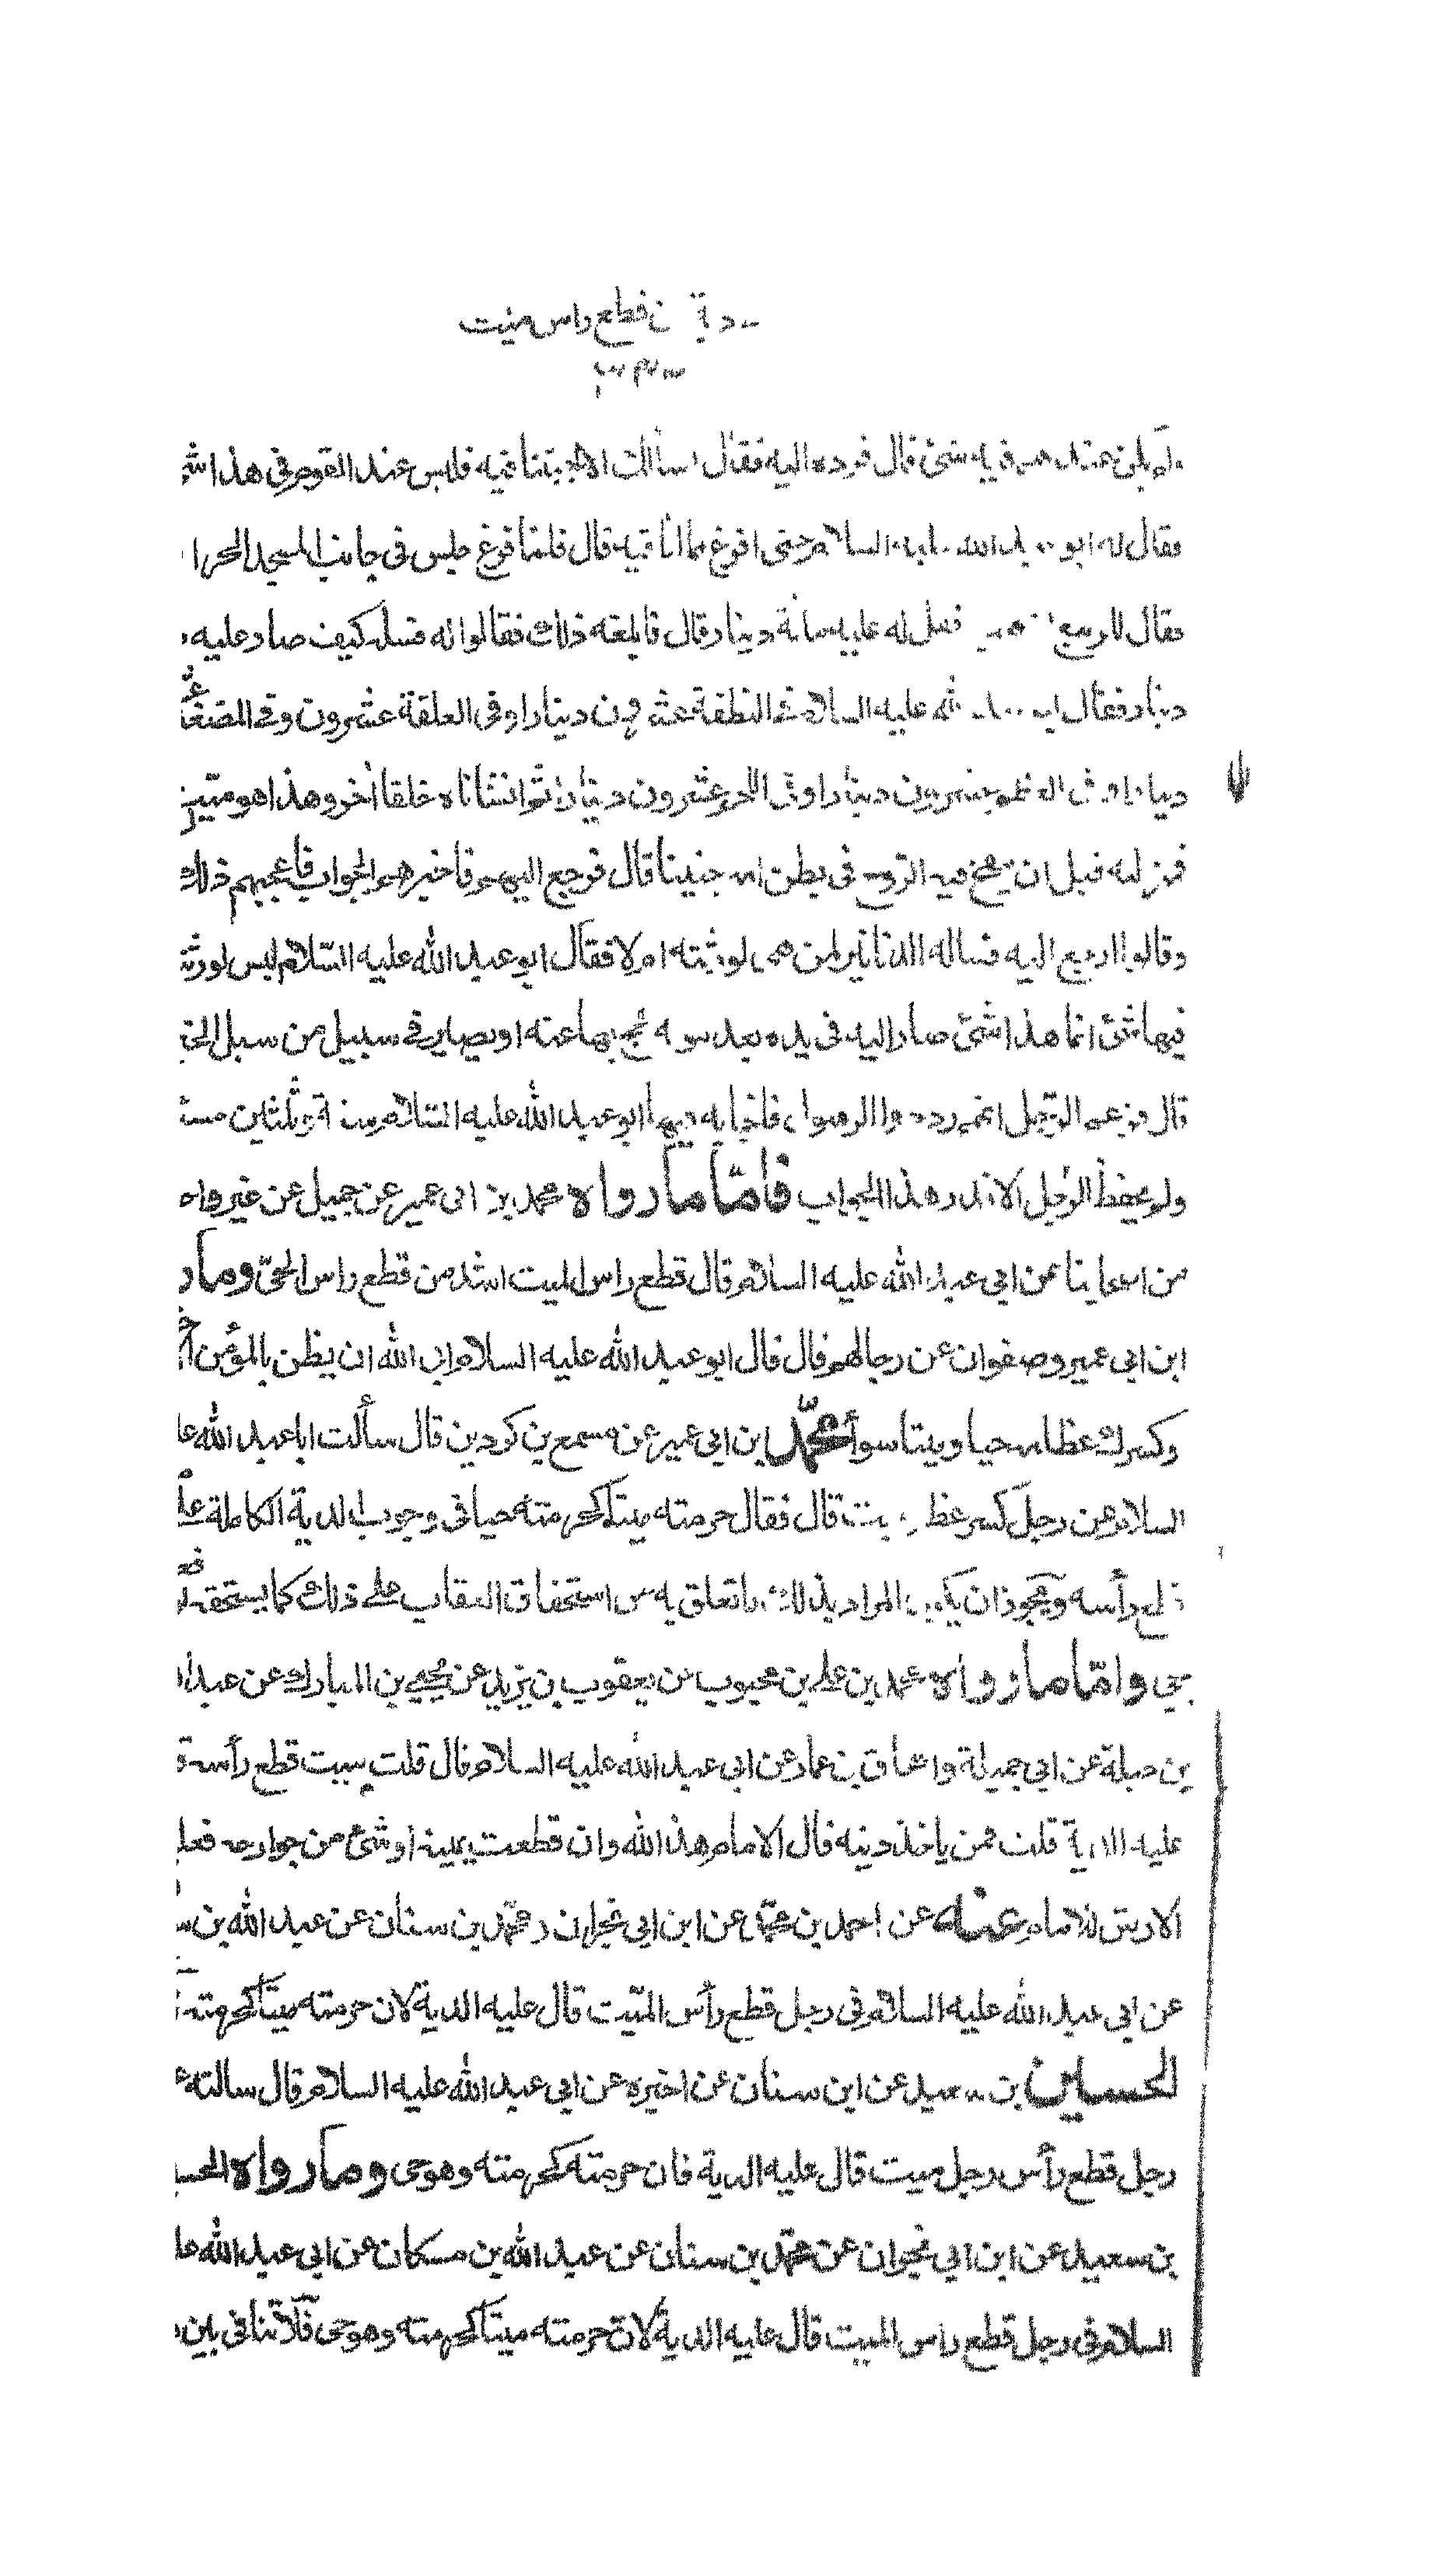 دية من قطع راس ميت
فيه شئ قال فرده اليه فقال اسألك الا اجبتنا فيه فليس عند القوم في هذا شئ
فقال له ابو عبد الله عليه السلام حتى افرغ مما انا فيه قال فلما فرغ جلس في جانب المسجد الحرا
فقال للربيع فقل له عليه مائة دينار قال فابلغه ذلك فقالوا له فسله كيف صار عليه
دينار فقال ابو عبد الله عليه السلام في النطفة عشرون دينارا وفي العلقة عشرون وفي المضغة
دينارا وفي العظم عشرون دينارا وفي اللحم عشرون دينارا ثم انشاناه خلقا اخر وهذا هو ميت
بمنزلته قبل ان ينفخ فيه الروح في بطن امه جنينا قال فرجع اليهم فاخبرهم بالجواب فاعجبهم ذلك
وقالوا ارجع اليه فساله الدنانير لمن هي لورثته ام لا فقال ابو عبد الله عليه السلام ليس لورثته
فيها شئ انما هذا شئ صار اليه في بدنه بعد موته يحج بها عنه او يصير في سبيل من سبل الخ
قال فزعم الرجل انهم ردوا الرسول فاجابه فيها ابو عبد الله عليه السلام ستة وثلثين مسئ
ولم يحفظ الرجل الا قدر هذا الجواب فأما ما رواه محمد بن ابى عمير عن جميل عن غير واحد
من اصحابنا عن ابي عبد الله عليه السلام قال قطع راس الميت اشد من قطع راس الحي وما ر
ابن ابي عمير وصفوان عن رجالهم قال قال ابو عبد الله عليه السلام ابى الله ان يظن بالمؤمن الا خ
وكسرك عظامه حيا وميتا سوأ محمد ابن ابي عمير عن مسمع بن كردين قال سألت ابا عبد الله عا
السلام عن رجل كسر عظم ميت قال فقال حرمته ميتا كحرمته حيا في وجوب الدية الكاملة على
قطع رأسه ويجوز ان يكون المراد بذلك ما تعلق به من استحقاق العقاب على ذلك كما يستحقه
حي واما ما رواه محمد بن علي بن محبوب عن يعقوب بن يزيد عن يحيى بن المبارك عن عبد الله
بن جبلة عن ابي جميلة واسحاق بن عمار عن ابي عبد الله عليه السلام قال قلت ميت قطع رأسه ق
عليه الدية قلت فمن ياخذ دينه قال الامام هذا لله وان قطعت يمينه او شئ من جوارحه فعليه
الارش للامام عنه عن احمد بن محمد عن ابن ابي نجران و محمد بن سنان عن عبد الله بن س
عن ابي عبد الله عليه السلام في رجل قطع رأس الميت قال عليه الدية لان حرمته ميتا كحرمته
الحسين بن سعيد عن ابن سنان عن اخبره عن ابي عبد الله عليه السلام قال سالته ع
رجل قطع رأس رجل ميت قال عليه الدية فان حرمته كحرمته وهو حي وما رواه الحسين
بن سعيد عن ابن ابي نجران عن محمد بن سنان عن عبد الله بن مسكان عن ابي عبد الله عا
السلام في رجل قطع راس الميت قال عليه الدية لان حرمته ميتا كحرمته وهو حي فلا تنافي بين